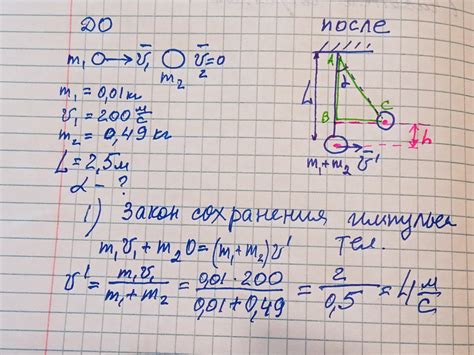 ДО
после
m₁ → v̄₁ m₂ v̄₂=0
m₁ = 0,01 кг
v₁ = 200 м/с
m₂ = 0,49 кг
L = 2,5 м
α - ?
A
α
L
B
C
h
m₁+m₂ v̄'
1) Закон сохранения импульса
тел.
m₁v₁ + m₂0 = (m₁+m₂)v'
v' = m₁v₁/(m₁+m₂) = 0,01·200/(0,01+0,49) = 2/0,5 = 4 м/с